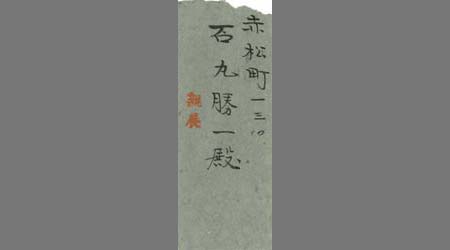 赤松町一三〇
石丸勝一殿
親展